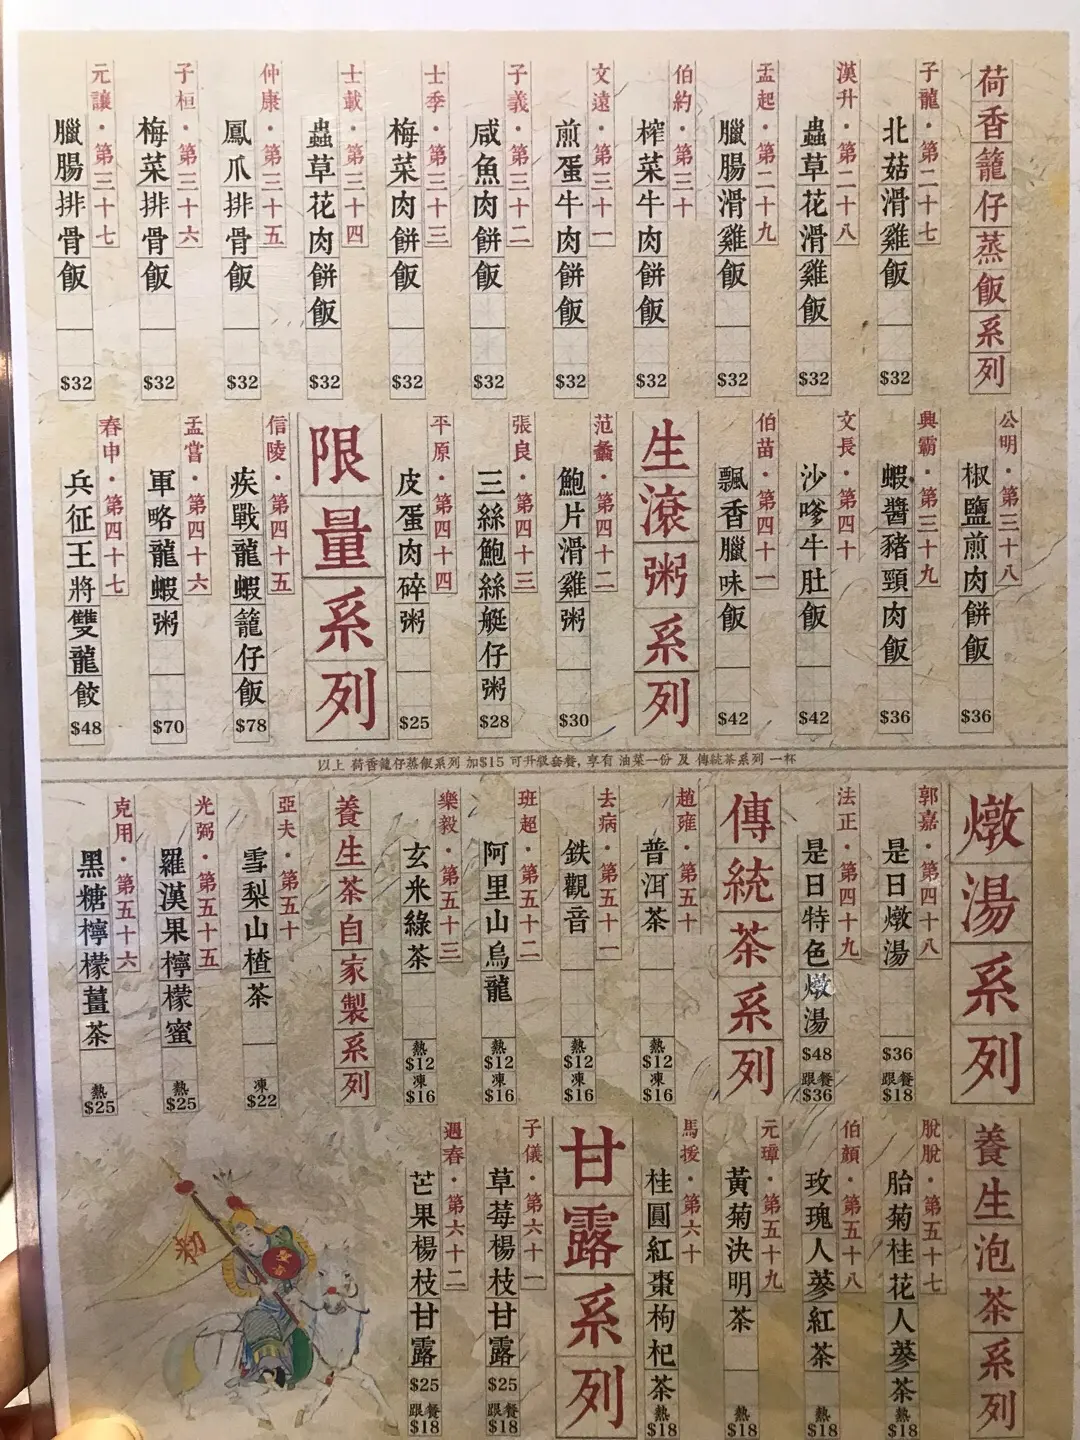 荷香籠仔蒸飯系列
子龍·第二十七
北菇滑雞飯 $32
漢升·第二十八
蟲草花滑雞飯 $32
孟起·第二十九
臘腸滑雞飯 $32
伯約·第三十
榨菜牛肉餅飯 $32
文遠·第三十一
煎蛋牛肉餅飯 $32
子義·第三十二
咸魚肉餅飯 $32
士季·第三十三
梅菜肉餅飯 $32
士載·第三十四
蟲草花肉餅飯 $32
仲康·第三十五
鳳爪排骨飯 $32
子桓·第三十六
梅菜排骨飯 $32
元讓·第三十七
臘腸排骨飯 $32
公明·第三十八
椒鹽煎肉餅飯 $36
興霸·第三十九
蝦醬豬頸肉飯 $36
文長·第四十
沙嗲牛肚飯 $42
伯苗·第四十一
飄香臘味飯 $42
生滾粥系列
范蠡·第四十二
鮑片滑雞粥 $30
張良·第四十三
三絲鮑絲艇仔粥 $28
平原·第四十四
皮蛋肉碎粥 $25
限量系列
信陵·第四十五
疾戰龍蝦籠仔飯 $78
孟嘗·第四十六
軍略龍蝦粥 $70
春申·第四十七
兵征王將雙龍餃 $48
以上 荷香籠仔蒸飯系列 加$15 可升級套餐, 享有 油菜一份 及 傳統茶系列 一杯
燉湯系列
郭嘉·第四十八
是日燉湯 $36 跟餐 $18
法正·第四十九
是日特色燉湯 $48 跟餐 $36
傳統茶系列
趙雍·第五十
普洱茶 熱 $12 凍 $16
去病·第五十一
鉄觀音 熱 $12 凍 $16
班超·第五十二
阿里山烏龍 熱 $12 凍 $16
樂毅·第五十三
玄米綠茶 熱 $12 凍 $16
養生茶自家製系列
亞夫·第五十
雪梨山楂茶 凍 $22
光弼·第五十五
羅漢果檸檬蜜 熱 $25
克用·第五十六
黑糖檸檬薑茶 熱 $25
養生泡茶系列
脫脫·第五十七
胎菊桂花人蔘茶 熱 $18
伯顏·第五十八
玫瑰人蔘紅茶 熱 $18
元璋·第五十九
黃菊決明茶 熱 $18
馬援·第六十
桂圓紅棗枸杞茶 熱 $18
甘露系列
子儀·第六十一
草莓楊枝甘露 $25 跟餐 $18
遇春·第六十二
芒果楊枝甘露 $25 跟餐 $18